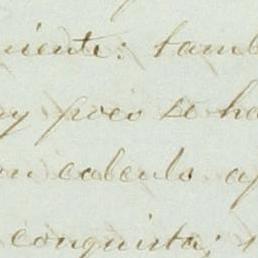 niente: tamb
y poco se ha
on calculo ap
conquista;